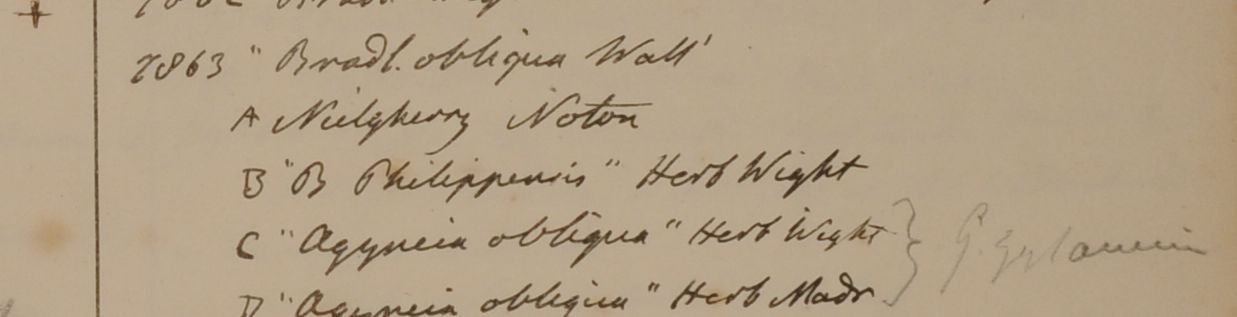 7863 " Bradl. obliqua Wall'
A Nielgherry Noton
B "B Philippensis" Herb Wight
C "Agyneia obliqua" Herb Wight
D "Agyneia obliqua" Herb Madr